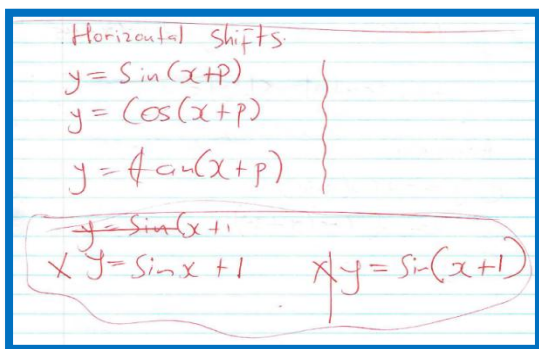 Horizontal shifts.
y = Sin(x+P)
y = Cos(x+p)
y = tan(x+p)
y = Sin(x+1
x y = Sinx +1 x y = Sin(x+1)